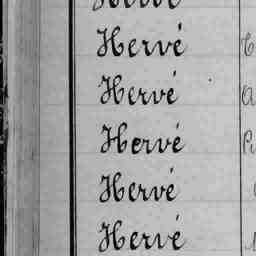 Hervé
Hervé
Hervé
Hervé
Hervé
Hervé